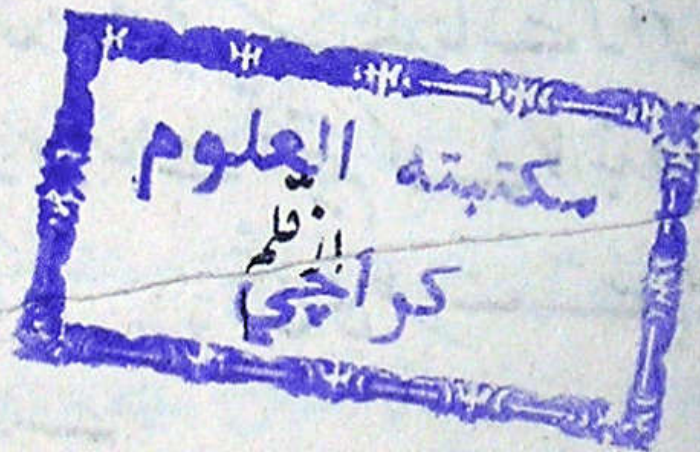 مكتبته العلوم
از قلم
كراچي